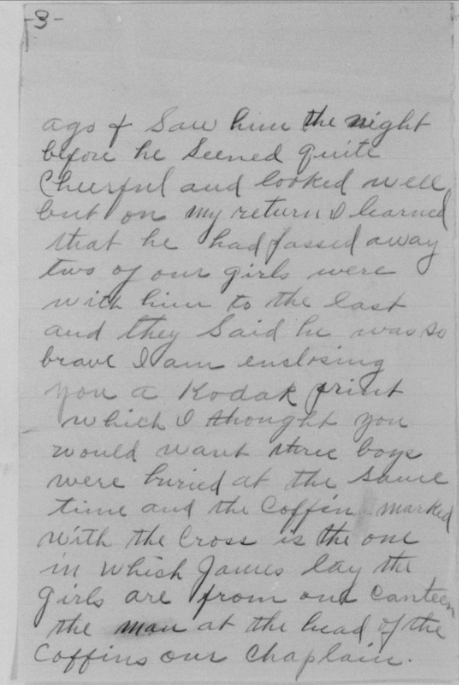 -3-
ago & Saw him the night
before he Seemed quite
Cheerful and looked well
but on my return I learned
that he had passed away
two of our girls were
with him to the last
and they Said he was so
brave I am enclosing
you a Kodak print
which I thought you
would want three boys
were buried at the same
time and the Coffin marked
with the Cross is the one
in which James lay the
girls are from our Canteen
the man at the head of the
Coffins our Chaplain.